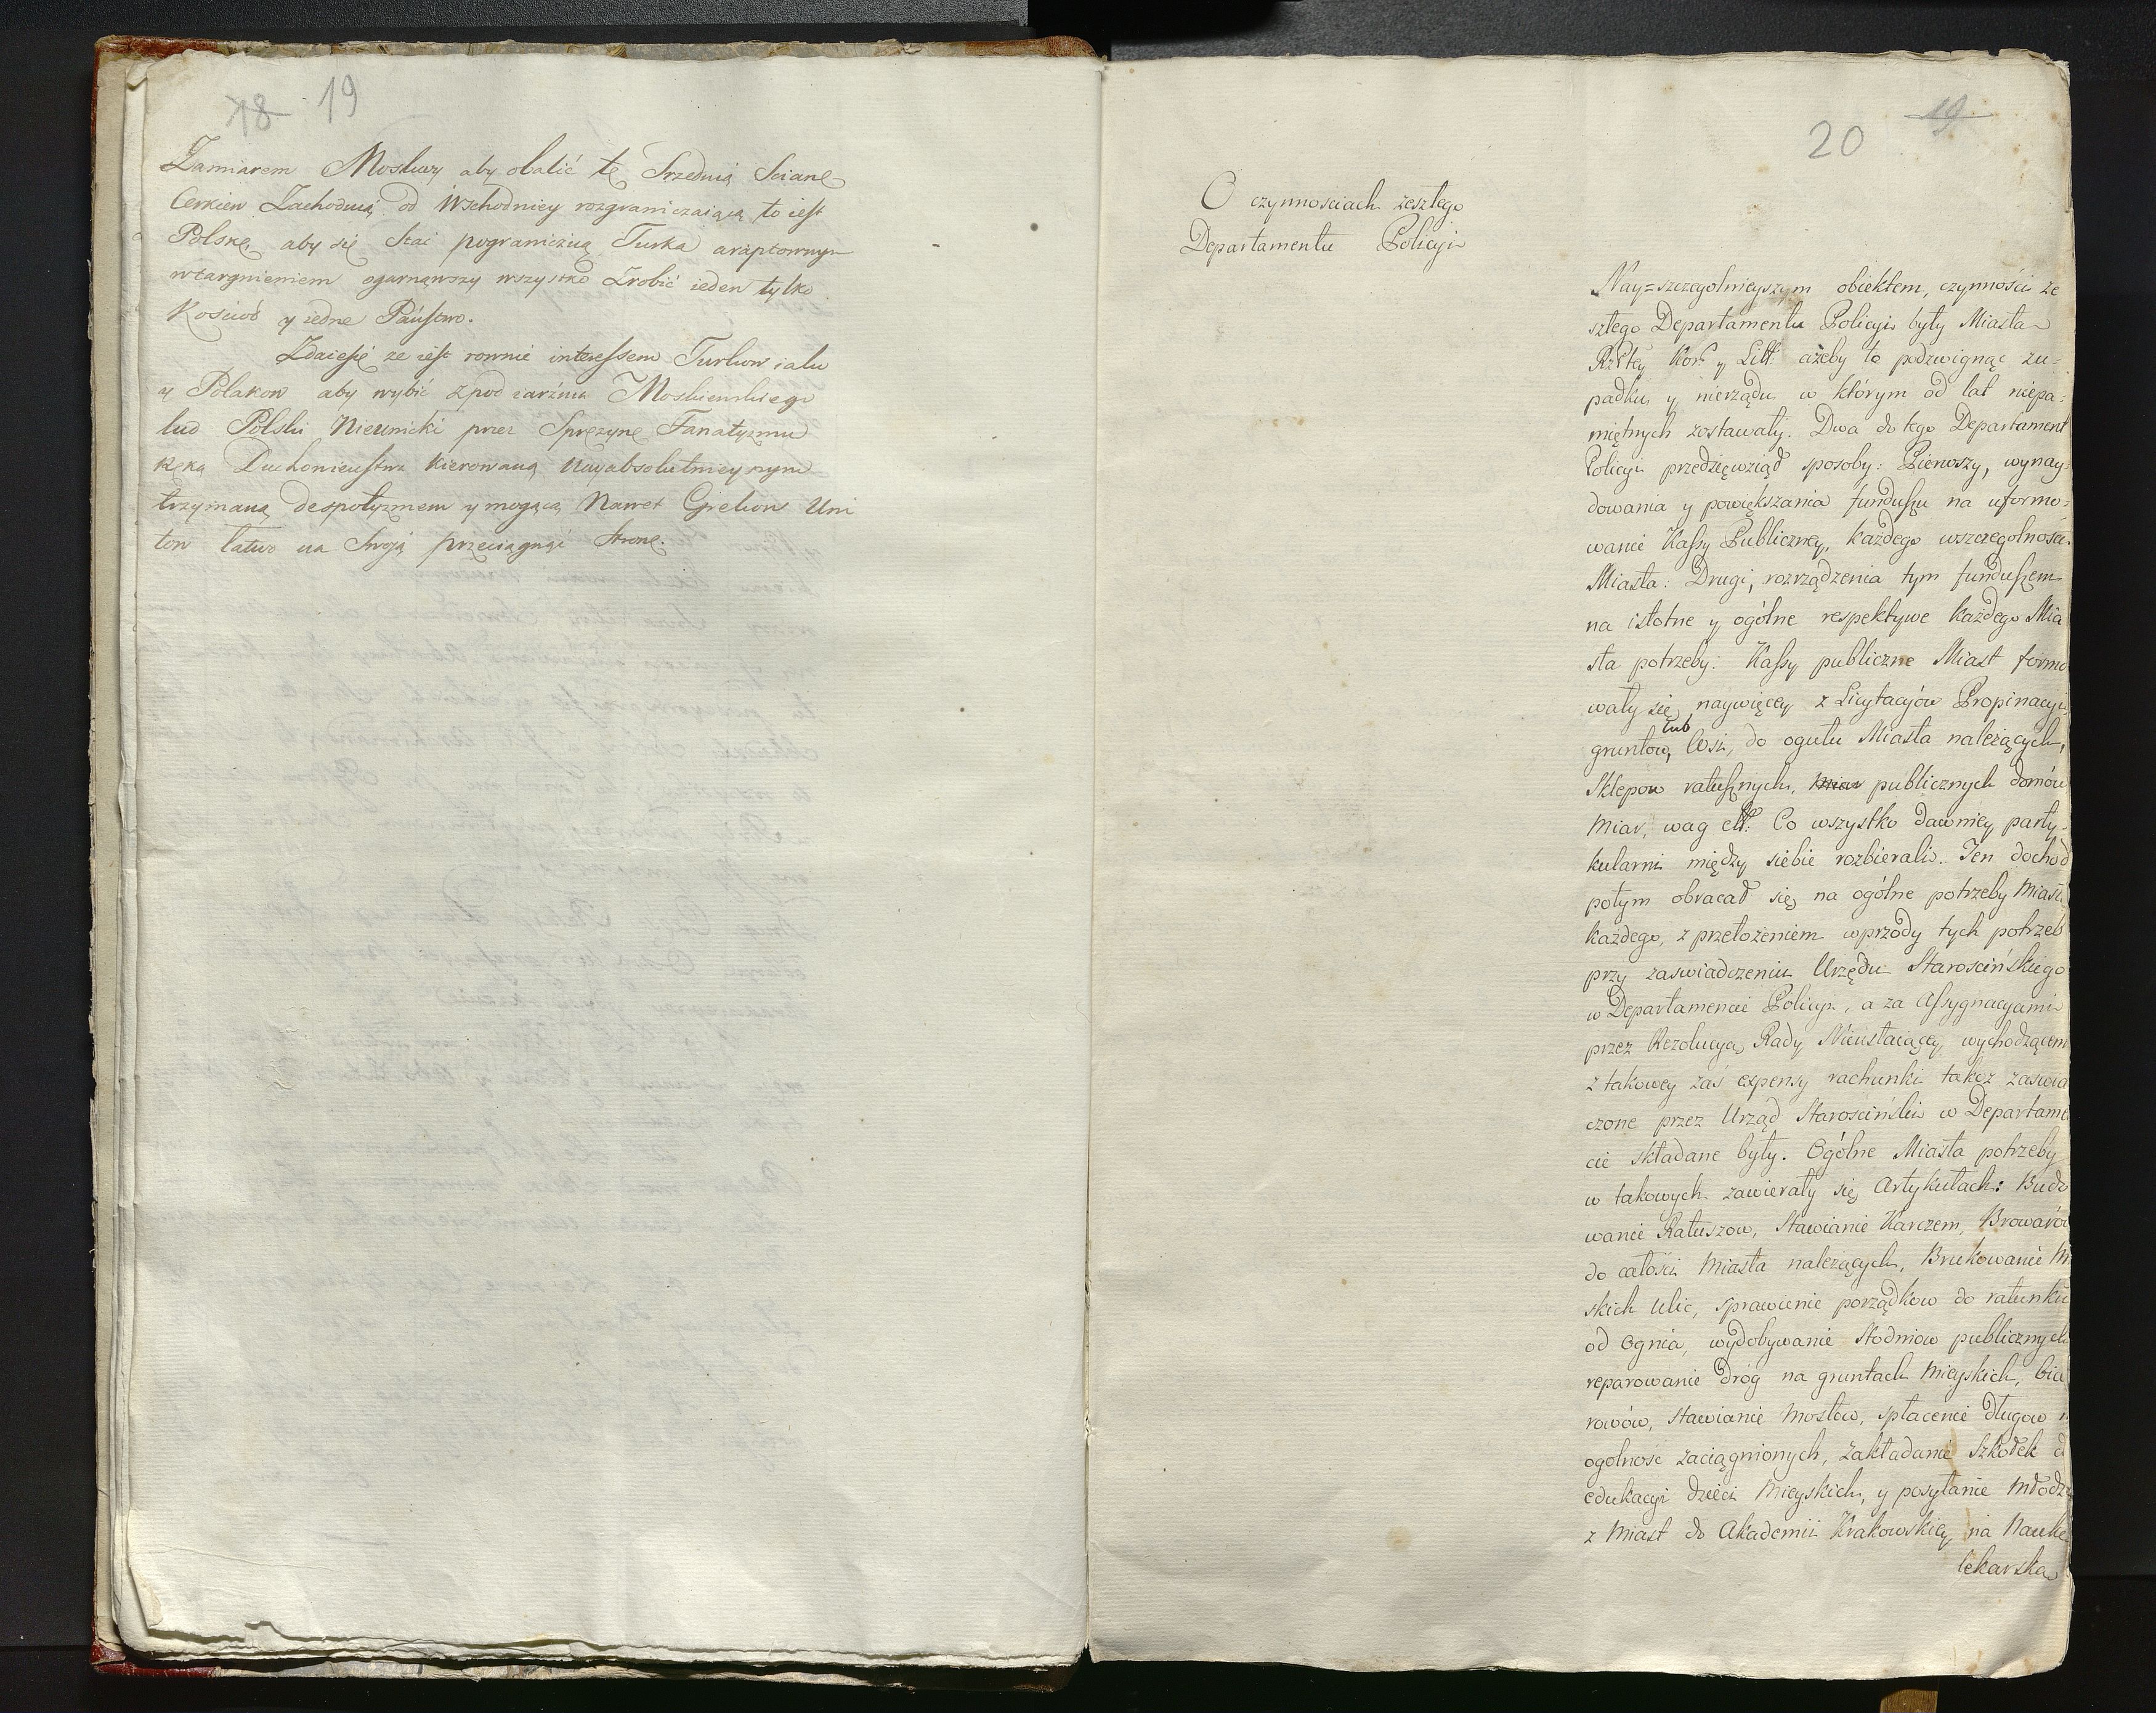 18 19
Zamiarem Moskwy aby obalić tę Srzednią Scianę
Cerkiew Zachodnią od Wschodniey rozgraniczaiącą to iest
Polskę, aby się stać pograniczną Turka a raptownym
wtargnieniem ogarnąwszy wszystko Zrobić ieden tylko
Kościoł y iedne Państwo.
Zdaiesię ze iest rownie interessem Turkow iako
y Polakow aby wybić z pod iarźma Moskiewskiego
lud Polski Nieunicki przez Spręzynę Fanatyzmu
ręką Duchowieństwa kierowaną nayabsolutnieyszym
trzymaną despotyzmem y mogącą nawet Grekow Uni
tow łatwo na swoią przeciągnąć stronę.
20 19
O czynnosciach zeszłego
Departamentu Policyi
Nay=szczegolnieyszym obiektem, czynności ze
szłego Departamentu Policyi były Miasta
Rzltey Kor: y Litt: ażeby te podzwignąć z u=
padku, y nierządu w którym od lat niepa=
miętnych zostawały. Dwa do tego Departament
Policyi przedsięwziął sposoby: Pierwszy, wynay=
dowania y powiększania funduszu na uformo=
wanie Kassy Publiczney, każdego wszczegolności
Miasta: Drugi, rozrządzenia tym funduszem
na istotne y ogólne respektywe każdego Mia
sta potrzeby: Kassy publiczne Miast formo
wały się naywięcey z Licytacyów Propinacyi
gruntow, lub Wsi, do ogułu Miasta należących,
Sklepow ratusznych, miar publicznych domów
Miar, wag ett: Co wszystko dawniey party=
kularni między siebie rozbierali. Ten dochod
potym obracał się na ogólne potrzeby Miasta
każdego, z przełożeniem wprzódy tych potrzeb
przy zaswiadczeniu Urzędu Starościńskiego
w Departamencie Policyi, a za Assygnacyami
przez Rezolucyą Rady Nieustaiącey, wychodzącemi
z takowey zaś expensy rachunki takoz zaswia
czone przez Urząd Starościński w Departame
cie składane były. Ogólne Miasta potrzeby
w takowych zawierały się Artykułach: Budo
wanie Ratuszow, Stawianie Karczem, Browarów
do całości Miasta należących, Brukowanie M
skich Ulic, sprawienie porządkow do ratunku
od Ognia, wydobywanie Stodniow publicznych
reparowanie dróg na gruntach Mieyskich, bicie
rowów, stawianie mostow, spłacenie długow
ogolnosc zaciągnionych, zakładanie Szkołek d
edukacyi dzieci Mieyskich, y posyłanie młodz
z Miast do Akademii Krakowskiey na Naukę
lekarską